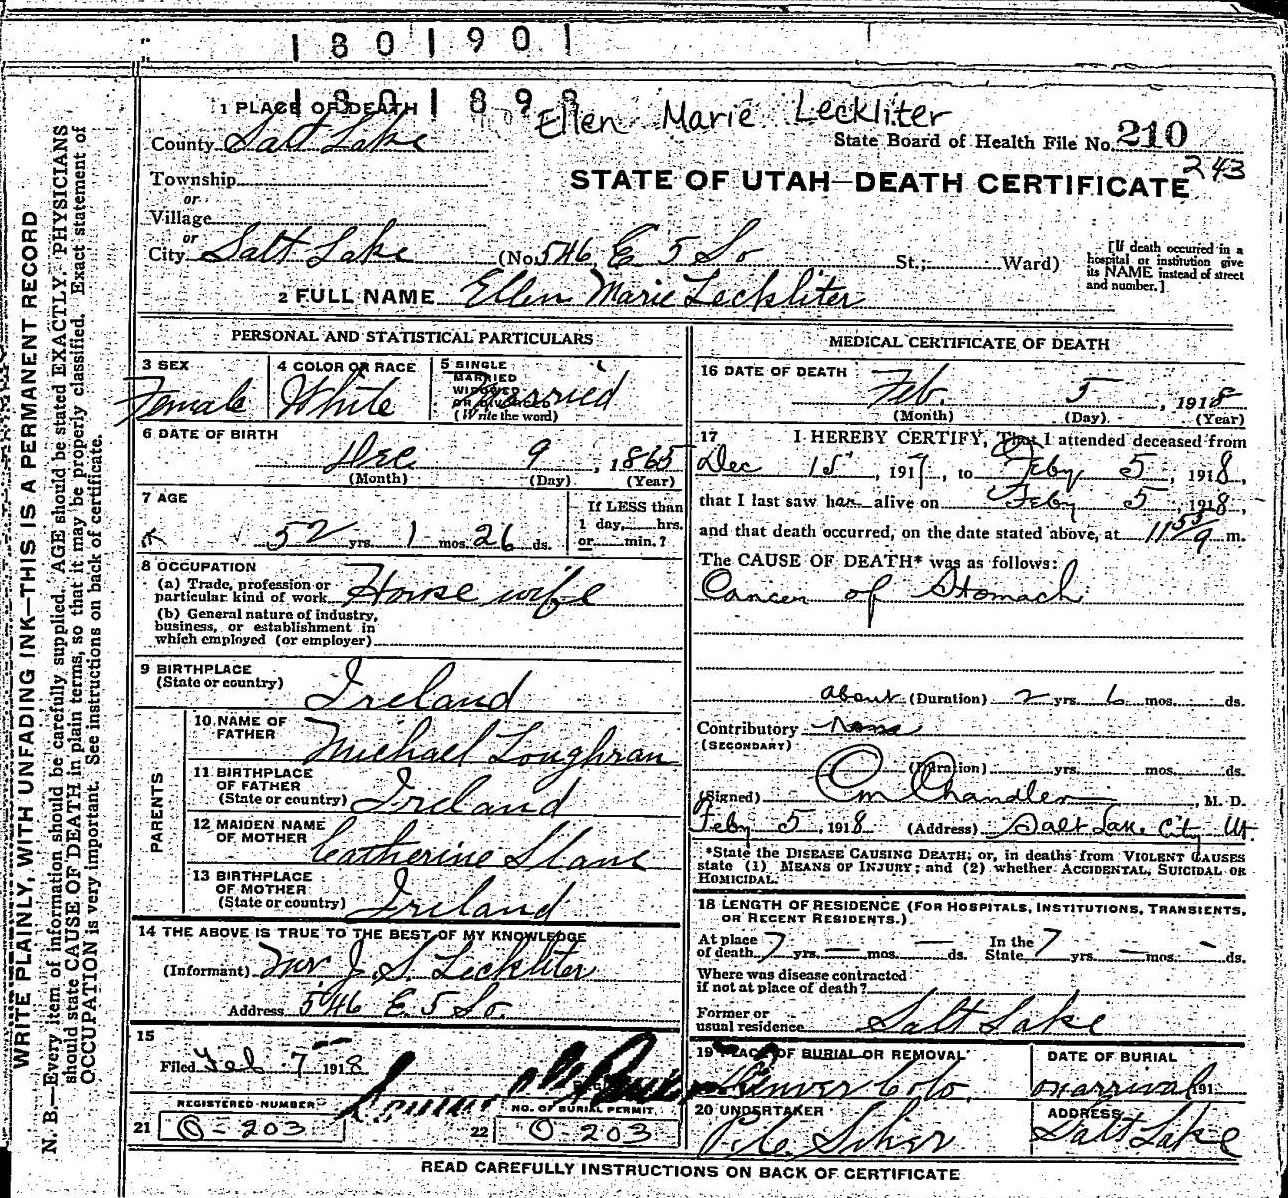 1801901
1801899
Ellen Marie Leckliter
1 PLACE OF DEATH
County Salt Lake
State Board of Health File No. 210
243
Township
or
Village
or
STATE OF UTAH—DEATH CERTIFICATE
City Salt Lake (No. 546 E 5 So St.; Ward)
[If death occurred in a
hospital or institution give
its NAME instead of street
and number.]
2 FULL NAME Ellen Marie Leckliter
PERSONAL AND STATISTICAL PARTICULARS
3 SEX
Female
4 COLOR OR RACE
White
5 SINGLE
MARRIED
WIDOWED
OR DIVORCED
(Write the word)
Married
6 DATE OF BIRTH
Dec 9, 1865
(Month) (Day) (Year)
7 AGE
52 yrs. 1 mos. 26 ds.
If LESS than
1 day, hrs.
or min.?
8 OCCUPATION
(a) Trade, profession or
particular kind of work House wife
(b) General nature of industry,
business, or establishment in
which employed (or employer)
9 BIRTHPLACE
(State or country)
Ireland
PARENTS
10 NAME OF
FATHER
Michael Loughran
11 BIRTHPLACE
OF FATHER
(State or country) Ireland
12 MAIDEN NAME
OF MOTHER
Catherine Slane
13 BIRTHPLACE
OF MOTHER
(State or country) Ireland
14 THE ABOVE IS TRUE TO THE BEST OF MY KNOWLEDGE
(Informant) Mr J. S. Leckliter
Address 546 E 5 So.
15
Filed Feb 7 1918
REGISTERED NUMBER
21 O-203
NO. OF BURIAL PERMIT
22 O-203
MEDICAL CERTIFICATE OF DEATH
16 DATE OF DEATH
Feb. 5, 1918
(Month) (Day) (Year)
17 I HEREBY CERTIFY, That I attended deceased from
Dec 15, 1917, to Feby 5, 1918,
that I last saw her alive on Feby 5, 1918,
and that death occurred, on the date stated above, at 11 55 m.
The CAUSE OF DEATH* was as follows:
Cancer of Stomach
about (Duration) 2 yrs. 6 mos. ds.
Contributory None
(SECONDARY)
(Duration) yrs. mos. ds.
(Signed) Chandler, M. D.
Feby 5, 1918 (Address) Salt Lake City Ut.
*State the DISEASE CAUSING DEATH; or, in deaths from VIOLENT CAUSES
state (1) MEANS OF INJURY; and (2) whether ACCIDENTAL, SUICIDAL OR
HOMICIDAL.
18 LENGTH OF RESIDENCE (FOR HOSPITALS, INSTITUTIONS, TRANSIENTS,
OR RECENT RESIDENTS.)
At place
of death 7 yrs. — mos. — ds. In the
State 7 yrs. — mos. - ds.
Where was disease contracted
if not at place of death?
Former or
usual residence Salt Lake
19 PLACE OF BURIAL OR REMOVAL
Denver Colo.
DATE OF BURIAL
on arrival 191
20 UNDERTAKER
ADDRESS
Salt Lake
READ CAREFULLY INSTRUCTIONS ON BACK OF CERTIFICATE
WRITE PLAINLY, WITH UNFADING INK—THIS IS A PERMANENT RECORD
N. B.—Every item of information should be carefully supplied. AGE should be stated EXACTLY. PHYSICIANS
should state CAUSE OF DEATH in plain terms, so that it may be properly classified. Exact statement of
OCCUPATION is very important. See instructions on back of certificate.